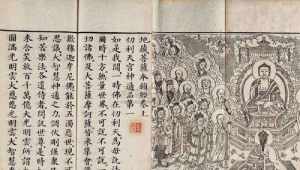 地藏菩薩本願經卷上
忉利天宮神通品第一
如是我聞一時佛在忉利天為母說法
爾時十方無量世界不可說不可說一
切諸佛及大菩薩摩訶薩皆來集會讚
歎釋迦牟尼佛能於五濁惡世現不可
思議大智慧神通之力調伏剛彊眾生
知苦樂法各遣侍者問訊世尊是時如
來含笑放百千萬億大光明雲所謂大
圓滿光明雲大慈悲光明雲大智慧光